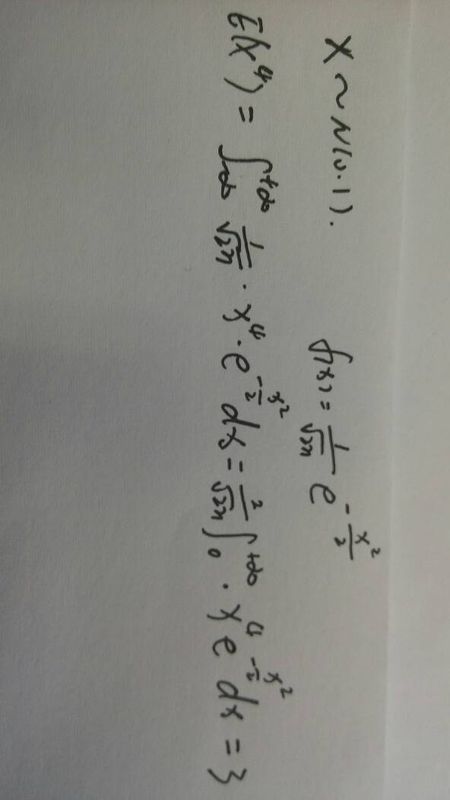 X ~ N(0.1). f(x) = 1/√2π e^(-x²/2)
E(X⁴) = ∫_{-∞}^{+∞} 1/√2π · x⁴ · e^(-x²/2) dx = 2/√2π ∫_0^{+∞} · x⁴ e^(-x²/2) dx = 3